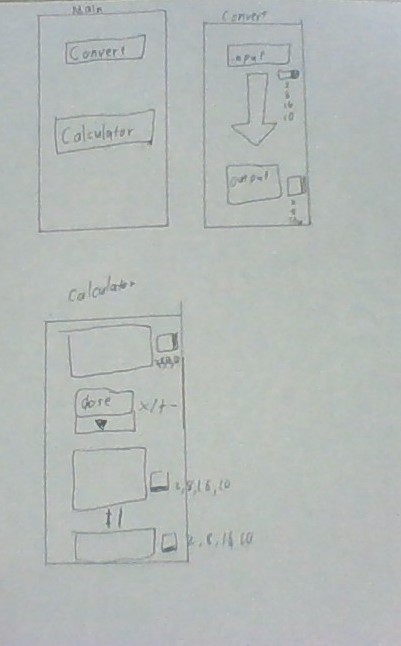 Main
Convert
Calculator
Convert
input
2
8
16
10
output
2
8
Calculator
dore
x/+-
2,8,16,10
2,8,16,10